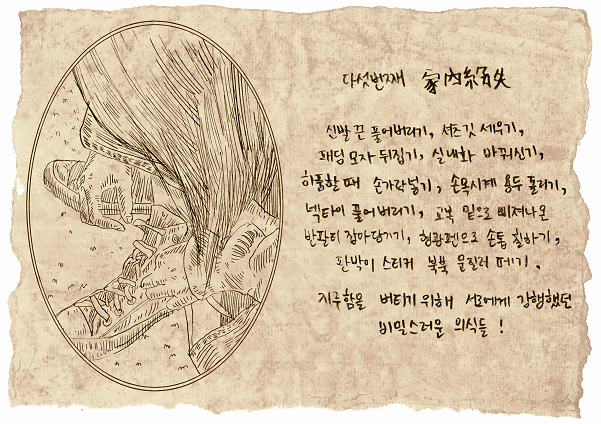 다섯번째
신발 끈 풀어버리기, 셔츠 깃 세우기,
패딩 모자 뒤집기, 실내화 바꿔신기,
하품할 때 손가락넣기, 손목시계 용두 돌리기,
넥타이 풀어버리기, 교복 밑으로 삐져나온
반팔티 잡아당기기, 형광펜으로 손톱 칠하기,
판박이 스티커 북북 문질러 떼기.
지루함을 버티기 위해 서로에게 강행했던
비밀스러운 의식들!